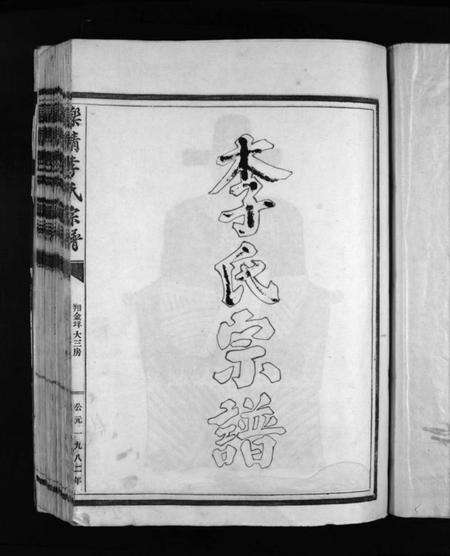 李氏宗譜
樂清李氏宗譜
翔金垟大三房
公元一九八二年